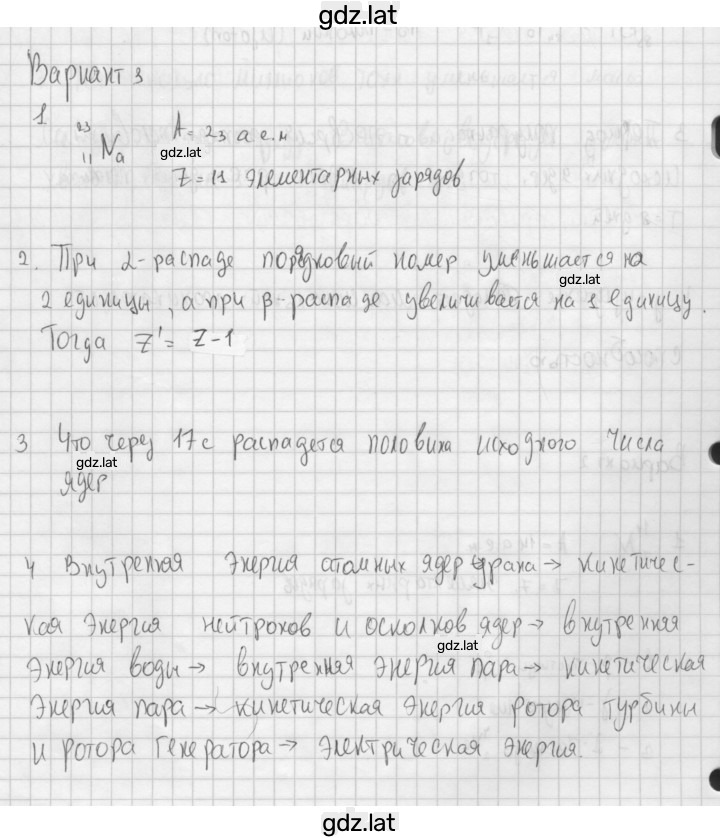 gdz.lat
Вариант 3
1
²³₁₁Na A=23 а.е.м
gdz.lat
Z=11 элементарных зарядов
2. При α-распаде порядковый номер уменьшается на
gdz.lat
2 единицы, а при β-распаде увеличивается на 1 единицу.
Тогда Z'=Z-1
3 Что через 17с распадется половина исходного числа
gdz.lat
ядер
4 Внутренняя энергия атомных ядер урана→ кинетичес-
кая энергия нейтронов и осколков ядер→ внутренняя
gdz.lat
энергия воды→ внутренняя энергия пара→ кинетическая
энергия пара→ кинетическая энергия ротора турбины
и ротора генератора→ электрическая энергия.
gdz.lat